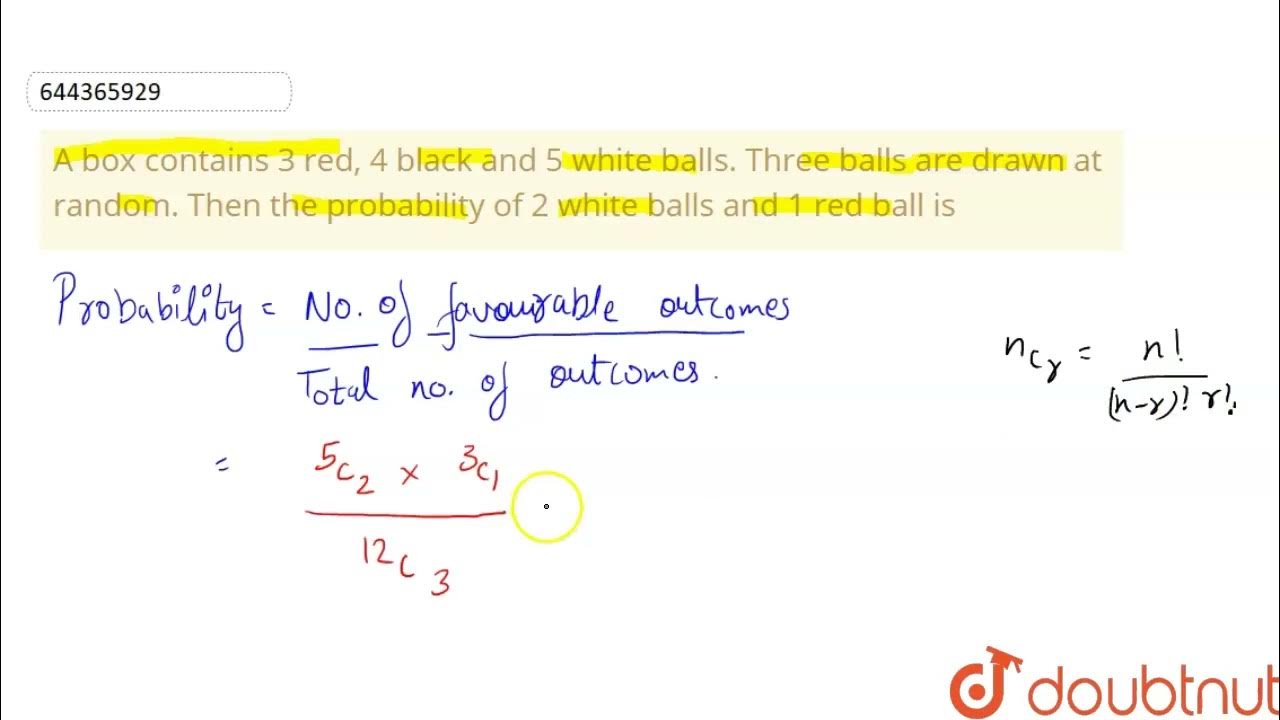 644365929
A box contains 3 red, 4 black and 5 white balls. Three balls are drawn at
random. Then the probability of 2 white balls and 1 red ball is
Probability = No. of favourable outcomes
Total no. of outcomes.
nCr = n!
(n-r)! r!
= 5C2 × 3C1
12C3
doubtnut